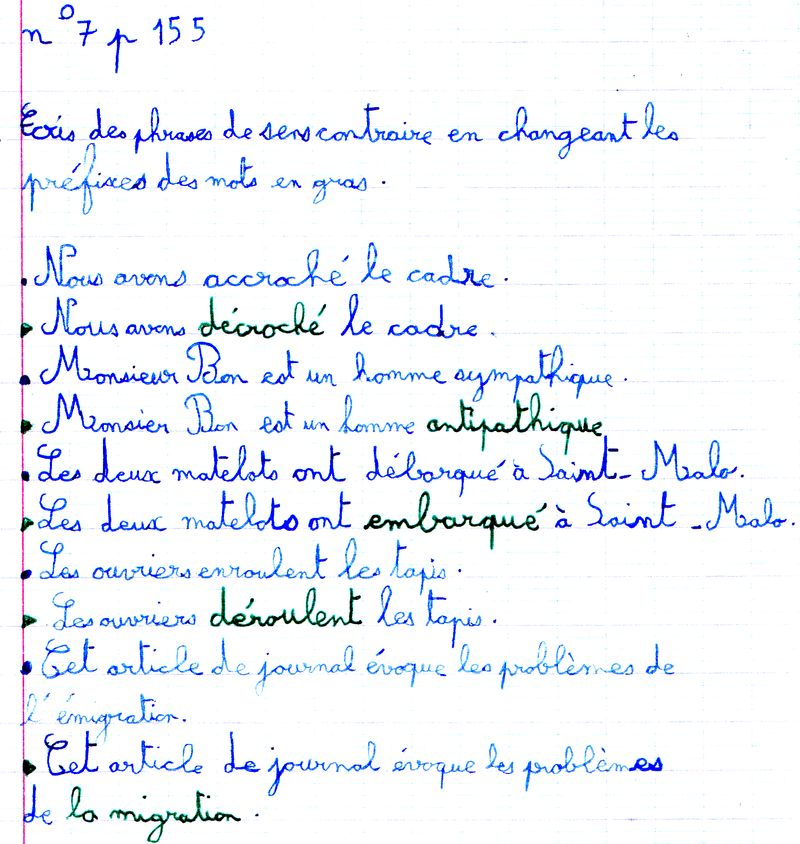 n° 7 p 155
Ecris des phrases de sens contraire en changeant les
préfixes des mots en gras.
• Nous avons accroché le cadre.
▸ Nous avons décroché le cadre.
• Monsieur Bon est un homme sympathique.
▸ Monsier Bon est un homme antipathique
• Les deux matelots ont débarqué à Saint-Malo.
▸ Les deux matelots ont embarqué à Saint-Malo.
• Les ouvriers enroulent les tapis.
▸ Les ouvriers déroulent les tapis.
• Cet article de journal évoque les problèmes de
l'émigration.
▸ Cet article de journal évoque les problèmes
de la migration.